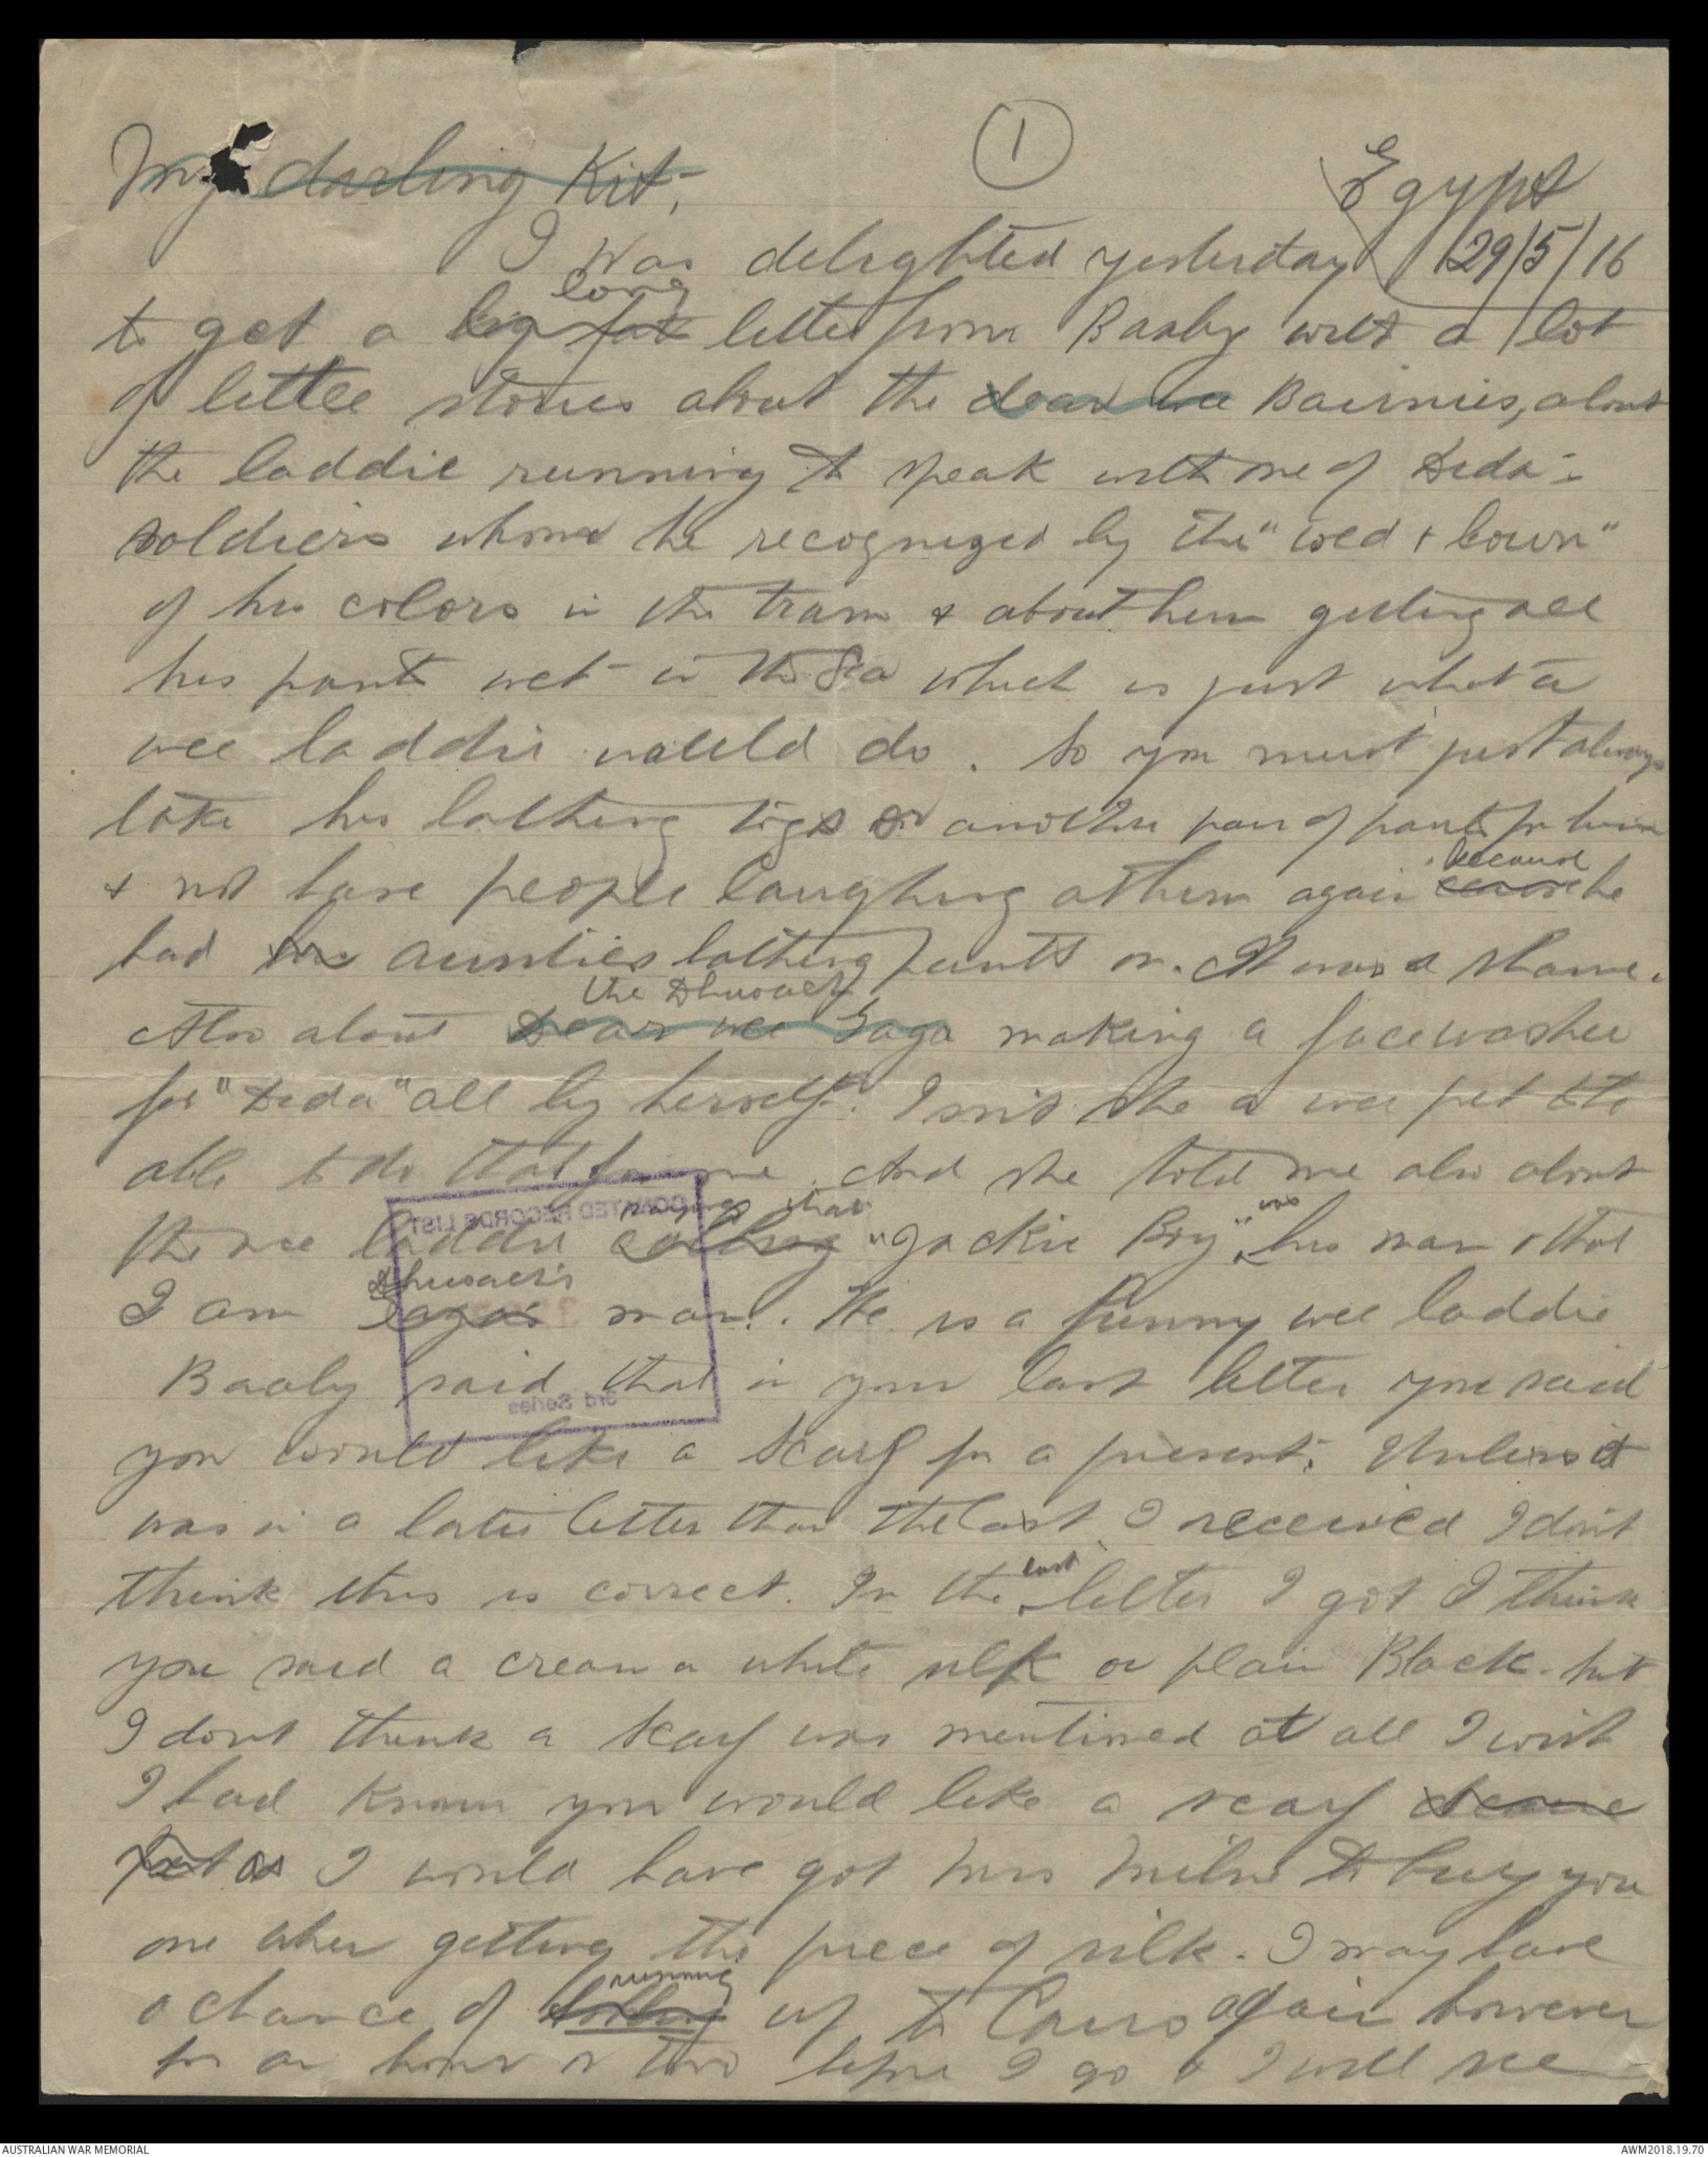 1
My darling Kit,
Egypt
29/5/16
I was delighted yesterday
long
to get a big fat letter from Baaby with a lot
of little stories about the dear wee Bairnies, about
the laddie running to speak with one of Dida's
soldiers whom he recognized by the "wed & bown"
of his colors in the tram & about him getting all
his pants wet in the Sea which is just what a
wee laddie would do. So you must just always
take his bathing togs or another pair of pants for him
& not have people laughing at him again
because
he
had aunties bathing pants on. It was a shame.
the Dhusach
Also about Dear wee Gaga making a facewasher
for "Dida" all by herself. Isn't she a wee pet to be
able to do that for me. And she told me also about
saying that
was
the wee laddie calling "Jackie Boy" his man & that
Dhusach's
I am Gagas man. He is a funny wee laddie
Baaby said that in your last letter you said
you would like a scarf for a present. Unless it
was in a later letter than the last I received I don't
last
think this is correct. In the letter I got I think
you said a cream or white silk or plain Black. but
I dont think a scarf was mentioned at all I wish
I had known you would like a scarf
but as I would have got Mrs Milne to buy you
one when getting the piece of silk. I may have
running
a chance of up to Cairo again however
for an hour or two before I go & I will see
DONATED RECORDS LIST
3rd Series
AUSTRALIAN WAR MEMORIAL
AWM2018.19.70